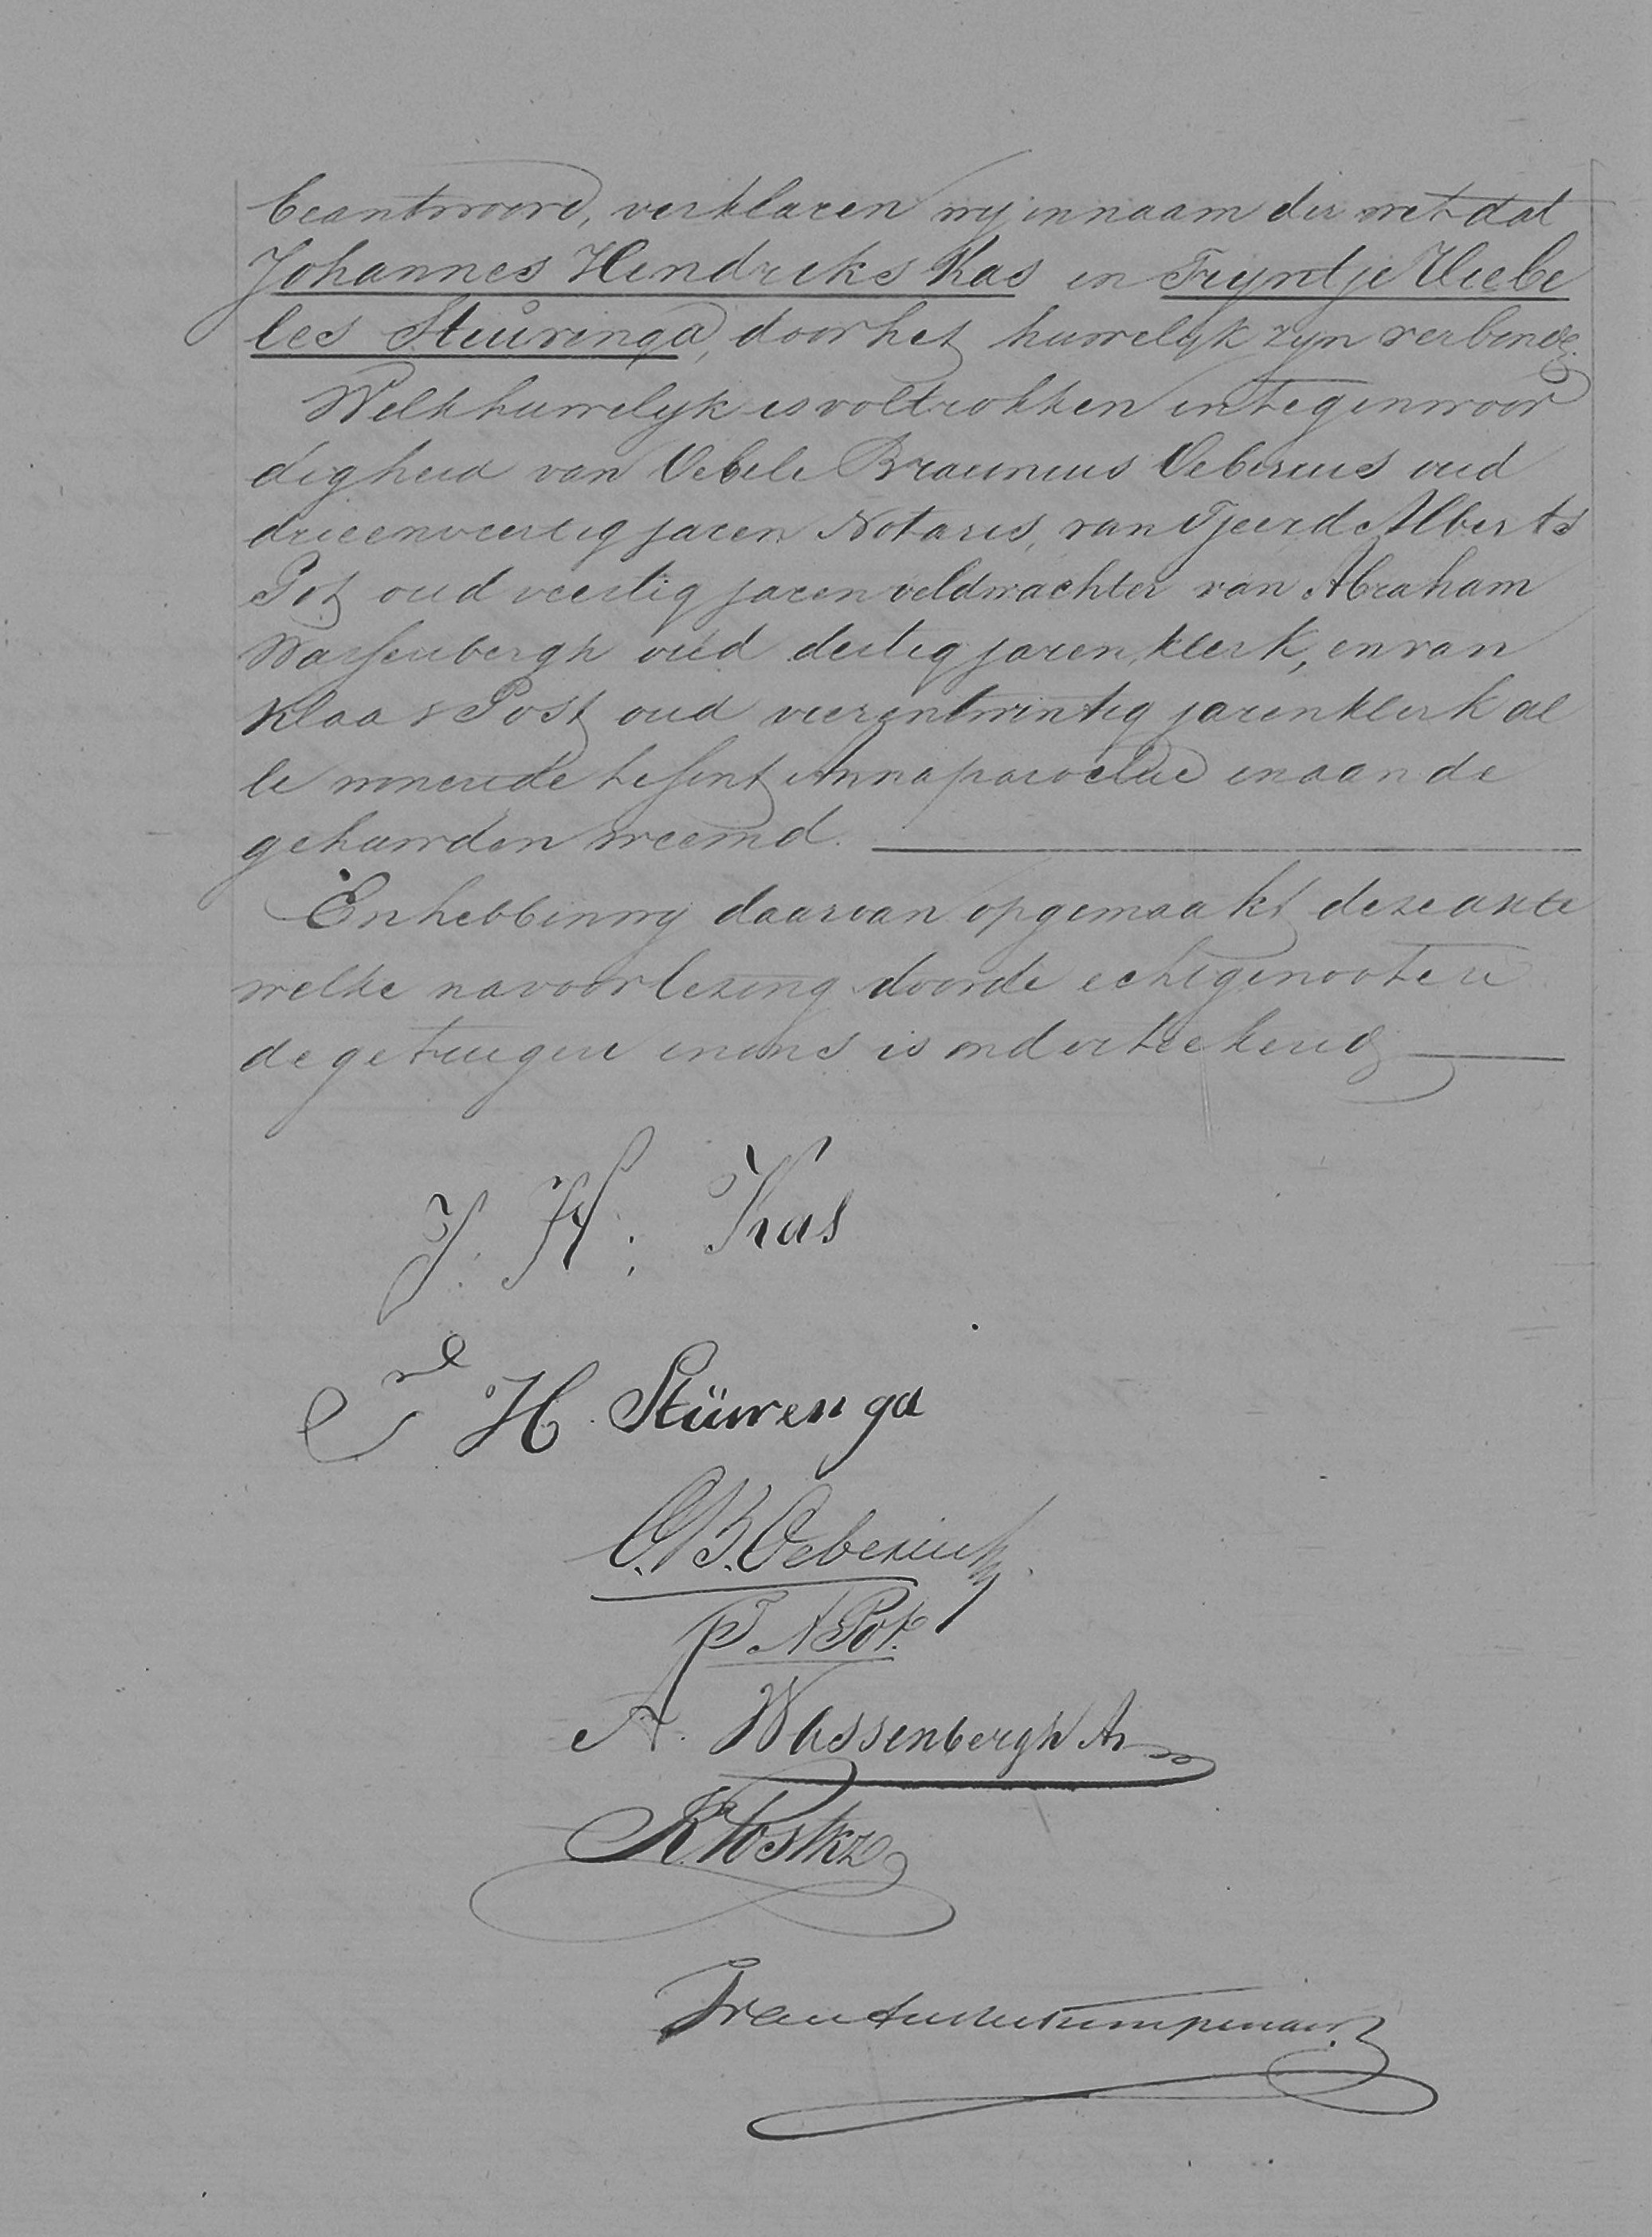 beantwoord, verklaren wij in naam der wet dat
Johannes Hendriks Kas en Trijntje Uiebe
les Stuuringa, door het huwelijk zijn verbonden
Welk huwelijk is voltrokken in tegenwoor
digheid van Oebele Braunius Oeberius oud
drieenveertig jaren Notaris, van Tjeerd Alberts
Pot oud veertig jaren veldwachter van Abraham
Wassenbergh oud dertig jaren, klerk, en van
Klaas Post oud vierentwintig jaren klerk al
le wonende te sint Annaparochie en aan de
gehuwden vreemd.
En hebben wij daarvan opgemaakt deze akte
welke na voorlezing door de echtgenooten
de getuigen en ons is onderteekend
J. H. Kas
H. Stüwenga
O. B. Oeberius
T A Pot.
A. Wassenbergh Az
K Post Kz